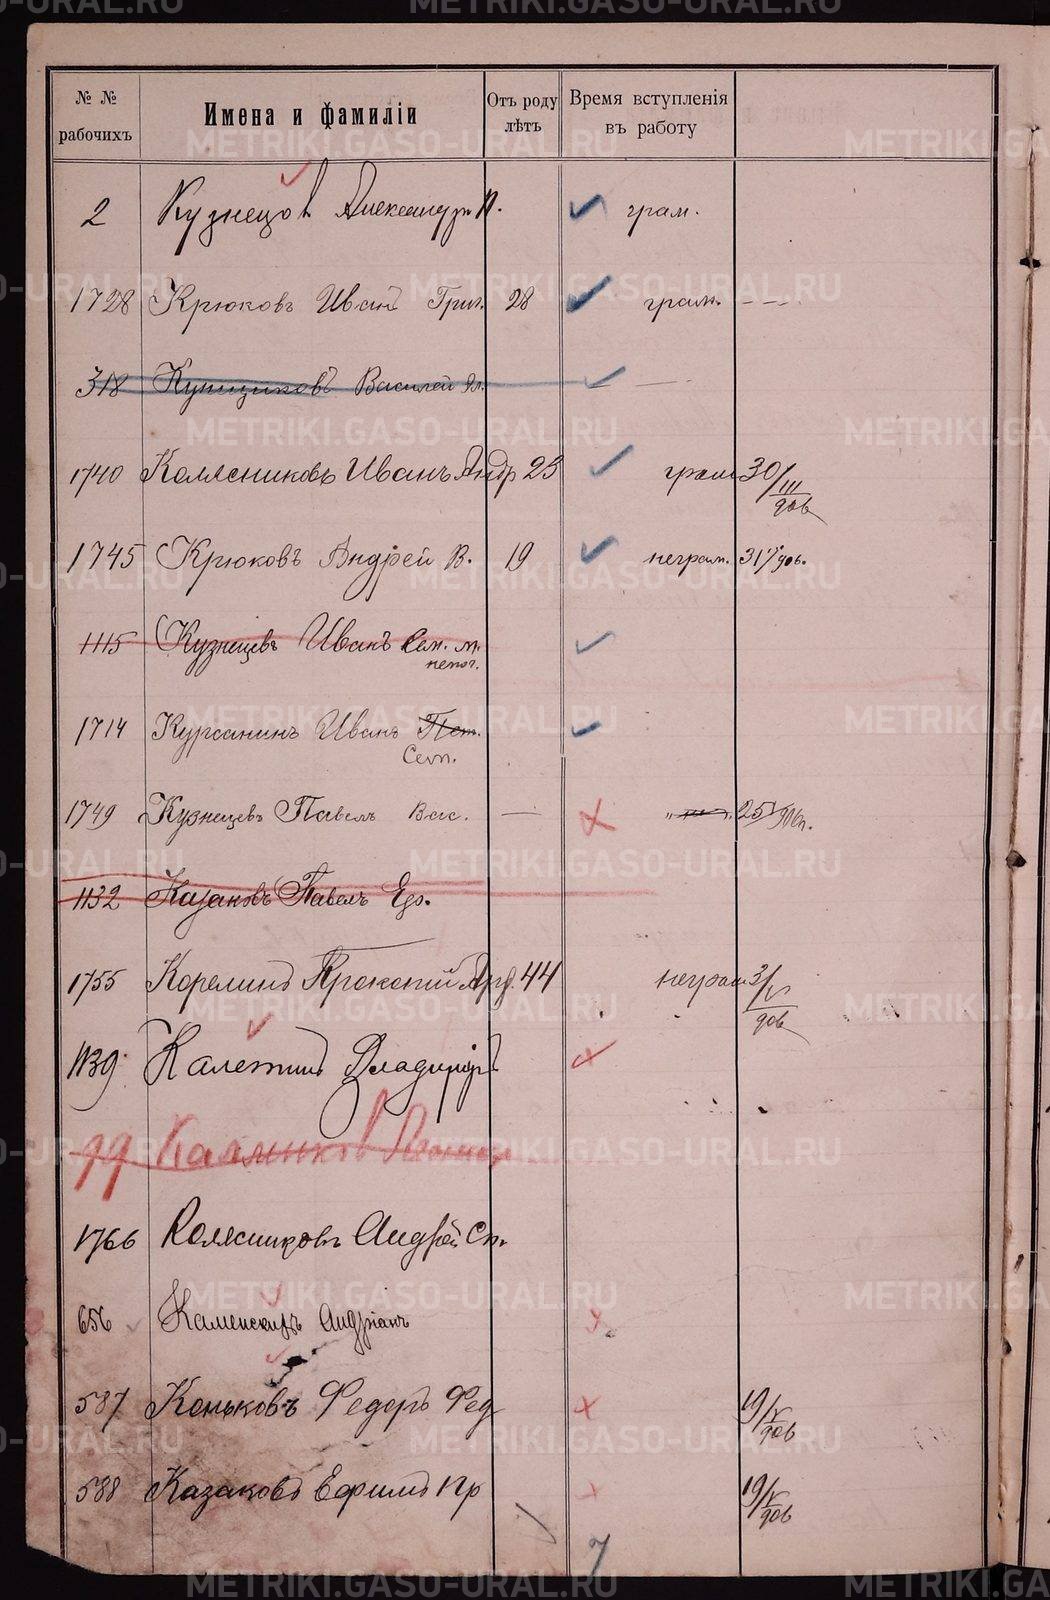 № № рабочихъ Имена и фамиліи Отъ роду лѣтъ Время вступленія въ работу
2 Кузнецов Александръ П. грам.
1728 Крюковъ Иванъ Григ. 28 грам.
318 Купщиковъ Василей Ял.
1740 Колясниковъ Иванъ Андр 23 грам 30/III 906
1745 Крюковъ Андрей В. 19 неграм. 31 906.
1115 Кузнецевъ Иванъ Сем. м.
непог.
1714 Курсанинъ Иванъ Пет.
Сеm.
1749 Кузнецевъ Павелъ Вас. — 25 906г.
1132 Казаковъ Павелъ Его.
1755 Корелинъ Прокопій 44 неграм 3/V 906
1139 Калетинъ Владимиръ
99
1766 Колясниковъ Андрей Сп.
656 Каменскихъ Андріанъ
587 Коньковъ Федоръ Фед 19/V 906
588 Казаковъ Ефимъ Пр 19/V 906
7
METRIKI.GASO-URAL.RU